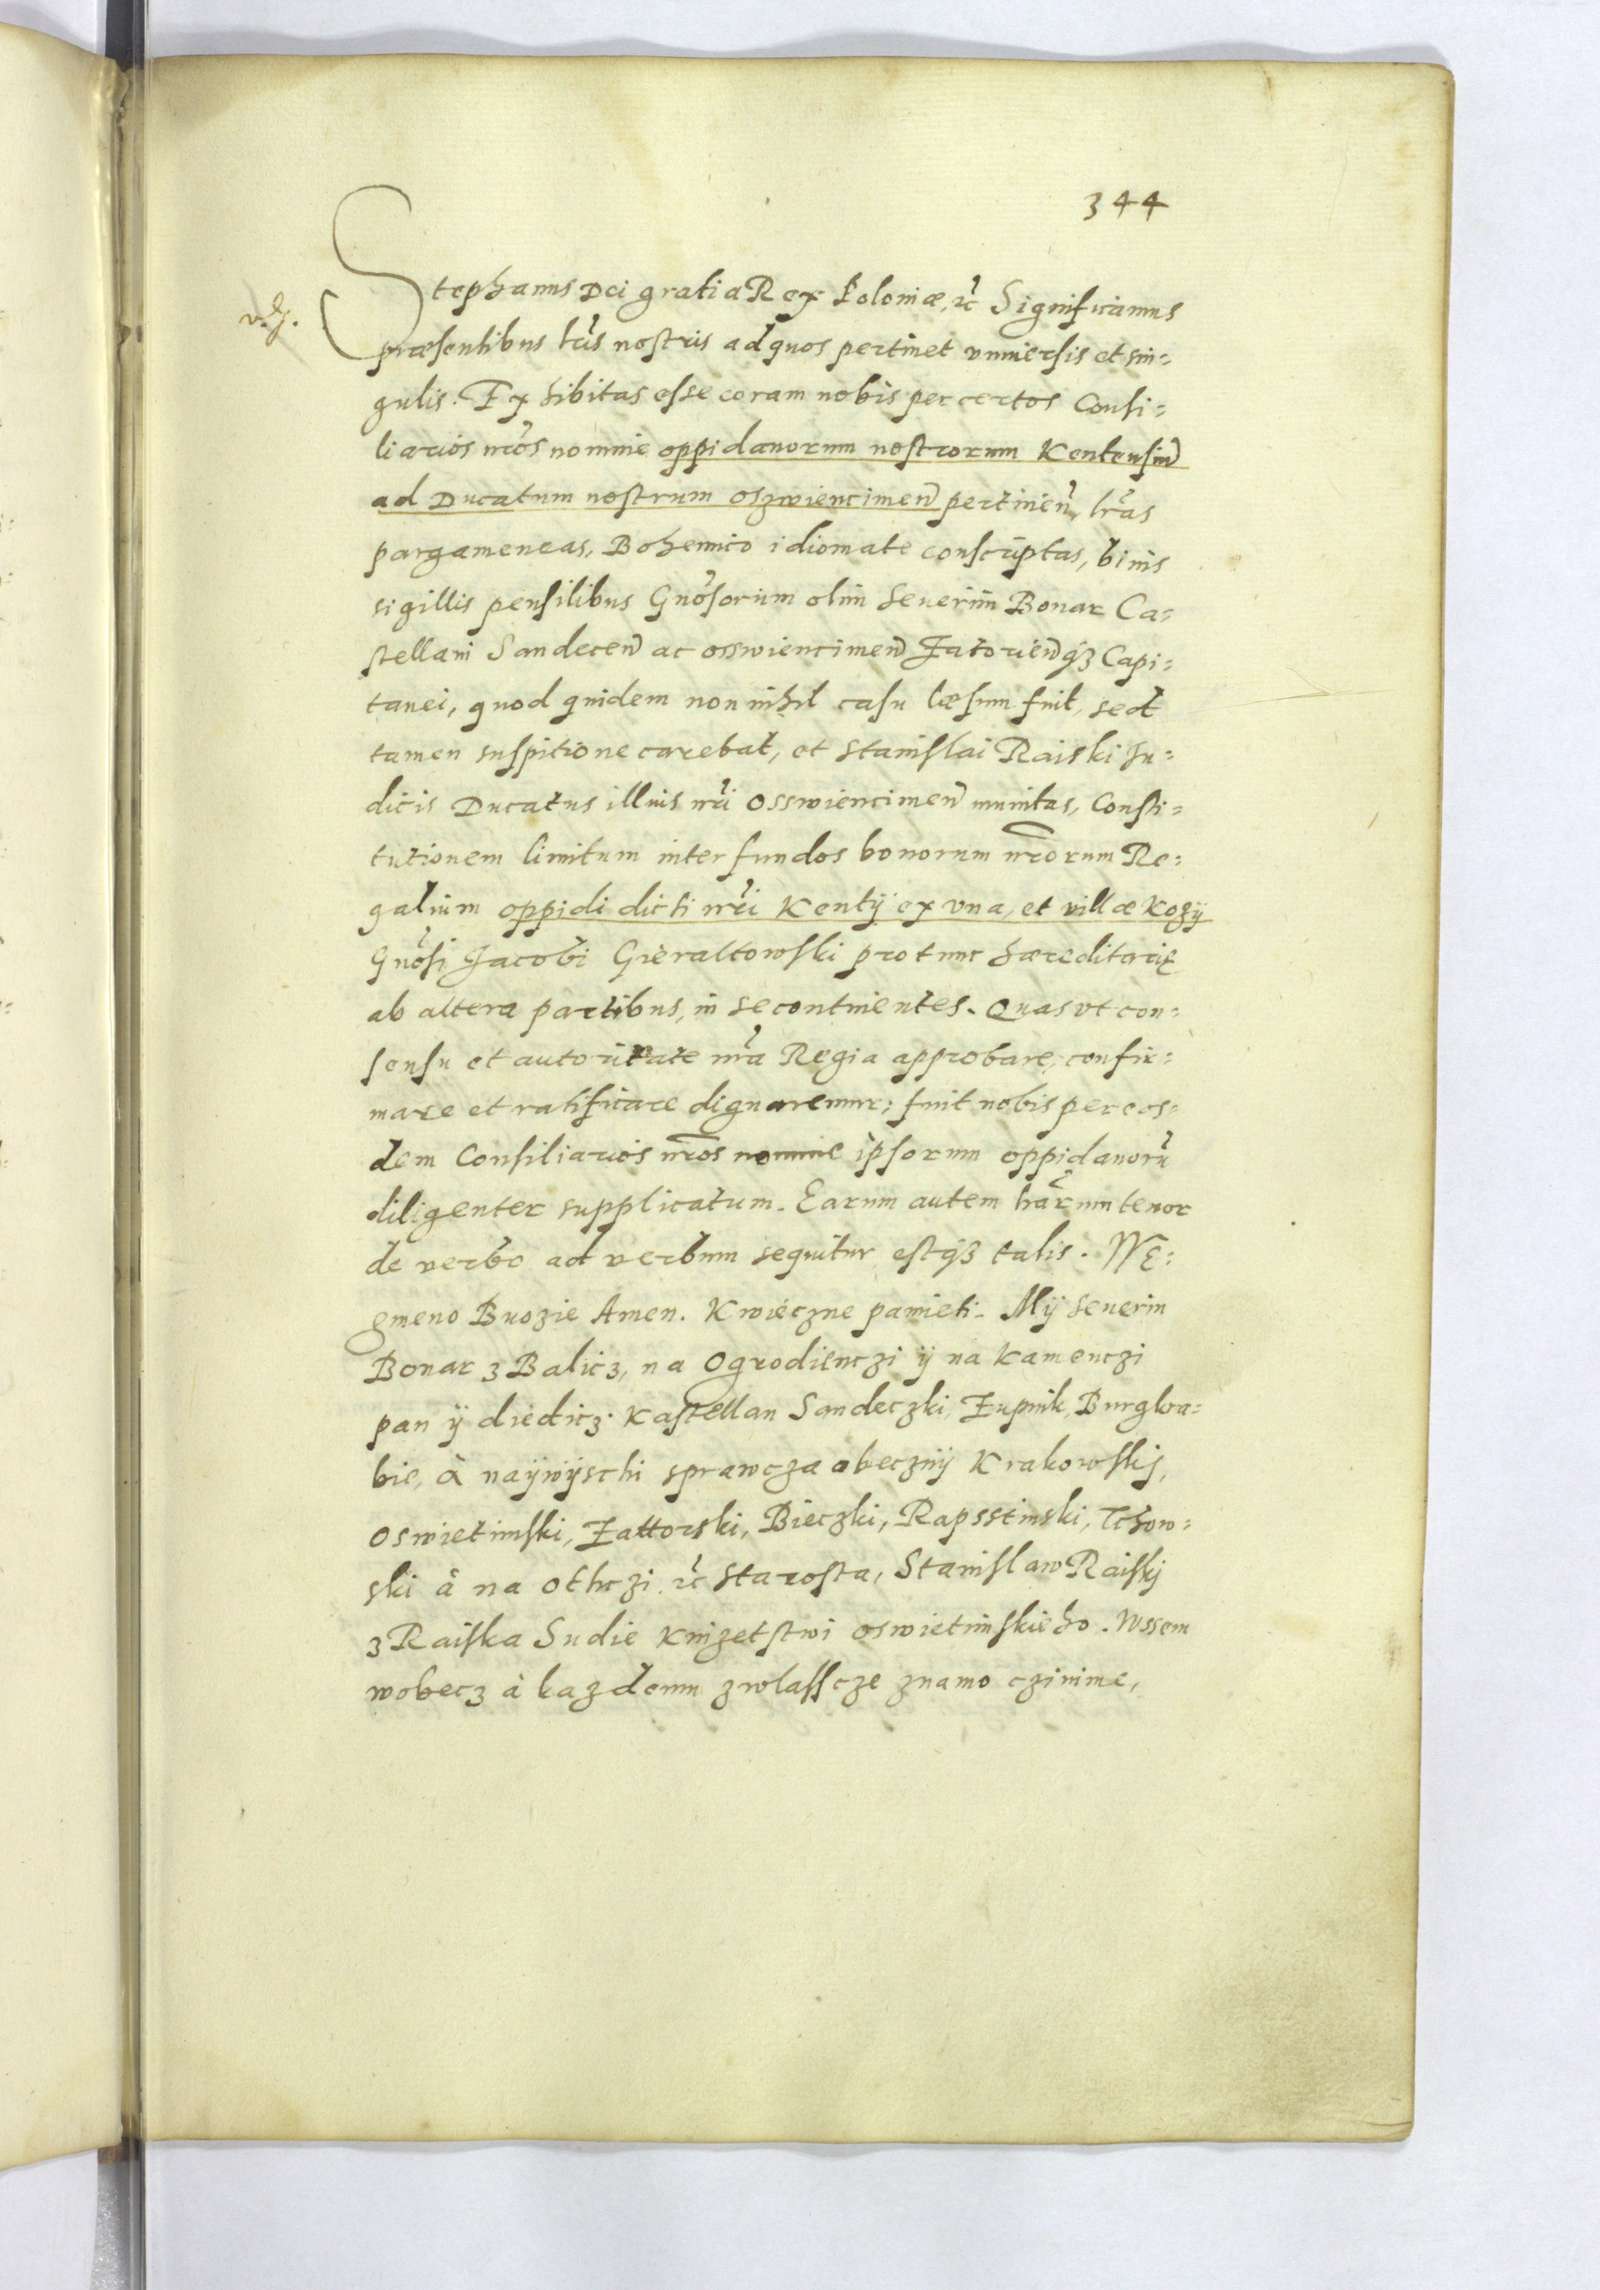 344
Stephanus Dei gratia Rex Poloniæ, rc̃ Significamus
præsentibus lr̃is nostris ad quos pertinet vniuersis et sin=
gulis. Exhibitas esse coram nobis per certos Consi=
liarios nr̃os nomine oppidanorum nostrorum Kentensiũ
ad Ducatum nostrum oszwiencimeñ pertineñ, lr̃as
pargameneas, Bohemico idiomate conscriptas, binis
sigillis pensilibus Gnõsorum olim Seuerini Bonar Ca=
stellani Sandeceñ ac osswiencimeñ Zatorieñq3 Capi=
tanei, quod quidem nonnihil casu læsum fuit, sed
tamen suspitione carebat, et Stanislai Raiski Ju=
dicis Ducatus illius nr̃i Osswiencimeñ munitas, Consti=
tutionem limitum inter fundos bonorum nr̃orum Re=
galium oppidi dicti nr̃i Kentÿ ex vna, et villæ Kozÿ
Gnõsi Jacobi Gieraltowski pro tunc hæreditariæ
ab altera partibus, in se continentes. Quas vt con=
sensu et autoritate nr̃a Regia approbare, confir=
mare et ratificare dignaremur; fuit nobis per eos=
dem Consiliarios nr̃os nomine ipsorum oppidanorũ
diligenter supplicatum. Earum autem lr̃arum tenor
de verbo ad verbum sequitur estq3 talis. WE=
gmeno Buozie Amen. Kwieczne pamieti. Mÿ Seuerin
Bonar z Balicz, na Ogrodienczi ÿ na Kamenczi
pan ÿ diedicz. Kastellan Sandeczki, Zupnik, Burgkra=
bie, à naÿwÿschi sprawcza obecznÿ Krakowskÿ,
Oswietimski, Zattorski, Bieczki, Rapsstinski, Tchow=
ski à na Othczi rc̃ Starosta, Stanislaw Raiskÿ
z Raiska Sudie Knizetstwi oswietimskieho. Wssem
wobecz à kazdemu zwlasscze znamo czinime,